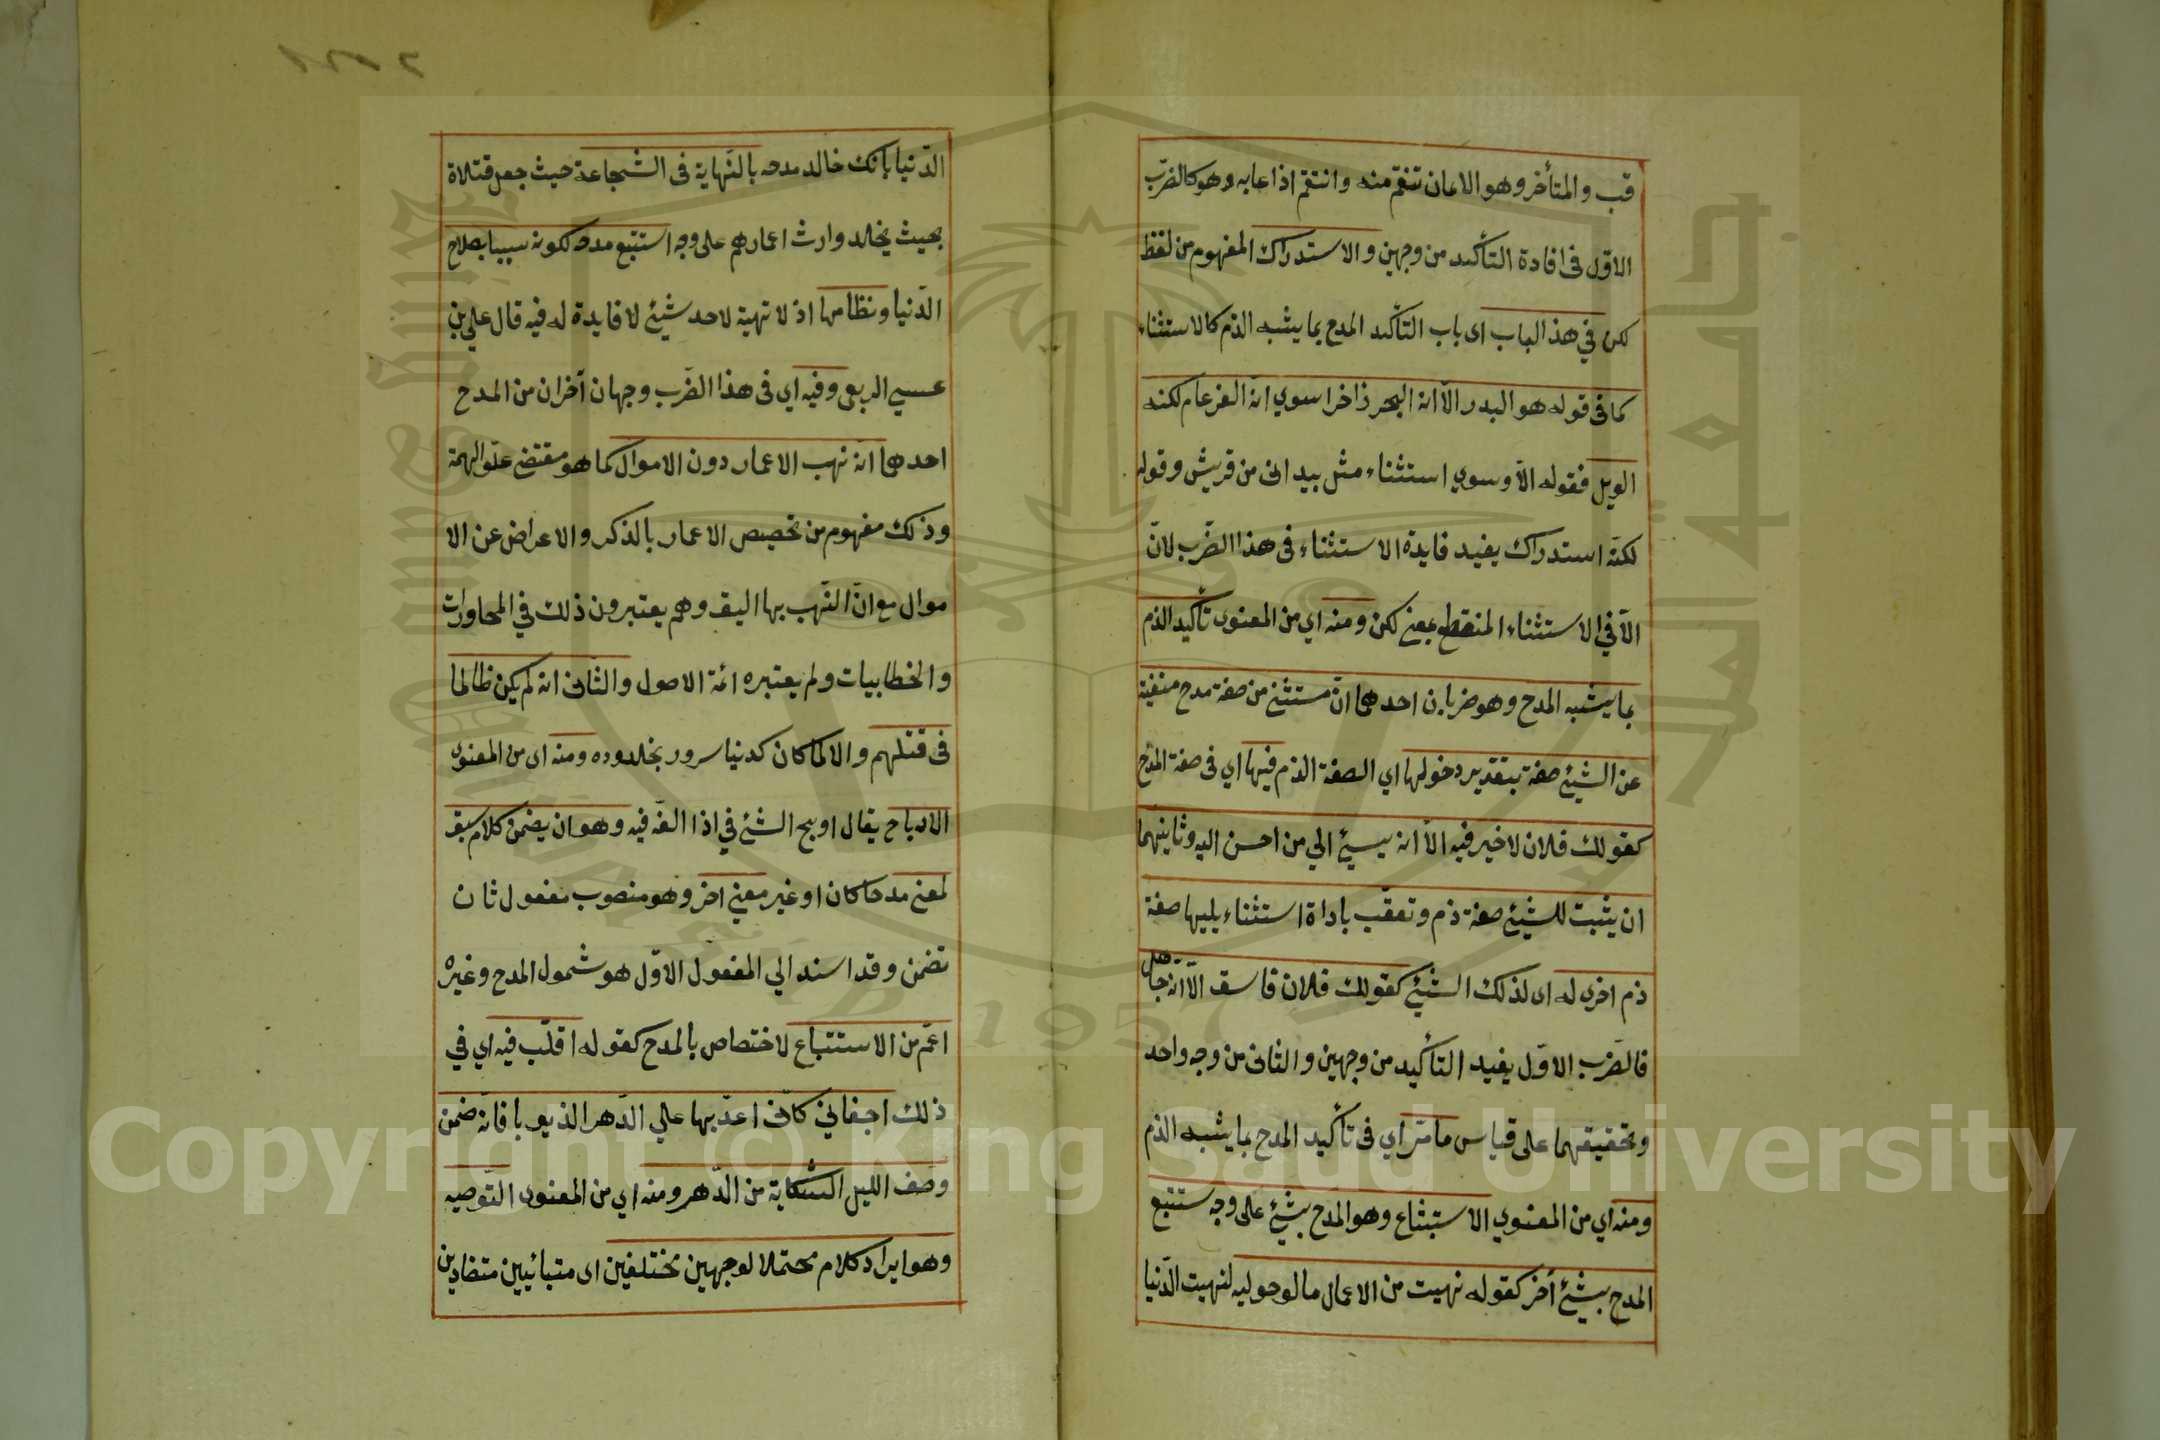 قب والمتأخر وهو الاعان تنقم منه وانتقم اذا عابه وهو كالضّرب
الاوّل فى افادة التأكيد من وجهين والاستدراك المفهوم من لفظ
لكن في هذ الباب اى باب التأكيد المدح بما يشبه الذم كالاستثناء
كما فى قوله هو البدر الّا انه البحر زاخرا سوي انّه الضرغام لكنه
الوبل فقوله الّا وسوي استثناء مثل بيد انى من قريش وقوله
لكنّه استدراك يفيد فايدة الاستثناء فى هذا الضّرب لانّ
الّا في الاستثناء المنقطع بمعنى لكن ومنه اي من المعنوى تأكيد الذم
بما يشبه المدح وهو ضربان احدهما انّ مستثنى من صفة مدح منفيّة
عن الشيئ صفة بتقدير دخولها اي الصفة الذم فيها اي فى صفة المدح
كقولك فلان لا خير فيه الّا انه يسيئ الي من احسن اليه وثاينهما
ان يثبت للشيئ صفة ذم وتعقب باداة استثناء يليها صفة
ذم اخرى له اى لذلك الشيئ كقولك فلان فاسق الّا انّه جاهل
فالضّرب الاوّل يفيد التأكيد من وجهين والثانى من وجه واحد
وتحقيقهما على قياس ما مرّ اي فى تأكيد المدح بما يشبه الذم
ومنه اي من المعنوي الاستبثاع وهو المدح بشيئ على وجه ستتبع
المدح بشيئ أخر كقوله نهبت من الاعمال مالو حوليه لنهيت الدّنيا
الدّنيا بانك خالد مدحه بالنّهاية فى الشّجاعة حيث جعل قتلاة
بحيث يخالد وارث اعمارهم على وجه استتبع مدحه لكونه سببا بصلاح
الدّنيا ونظامها اذ لا تهية لاحد شيئ لا فايدة له فيه قال علي بن
عسي الربعى وفيه اي فى هذا الضّرب وجهان أخران من المدح
احدهما انّه نهب الاعمار دون الاموال كما هو مقتضى علوّ الهمّة
وذلك مفهوم من تخصيص الاعمار بالذكر والاعراض عن الا
موال مع انّ النّهب بها اليق وهم يعتبرون ذلك في المحاورات
والخطابيات ولم يعتبره ائمة الاصول والثّانى انه لم يكن ظالما
فى قتلهم والا لما كان كدنيا سرور بخلدوده ومنه اى من المعنوى
الادباح يقال اوبج الشئ في اذا الفّه فيه وهو ان يضمن كلام سيق
لمعنى مدحا كان او غير معنى اخر وهو منصوب مفعول ثان
تضمن وقد اسند الي المفعول الاوّل هو شمول المدح وغيره
اعمّ من الاستتباع لاختصاص بالمدح كقوله اقلّب فيه اي في
ذلك اجفاني كانّى اعدّ بها علي الدّهر الذيوبا فانّه ضمن
وصف الليل الشكاية من الدّهر ومنه اي من المعنوى التّوصيه
وهو ايراد كلام محتملا لوجهين مختلفين اى متبائيين متضادين
Copyright © King Saud University
1957